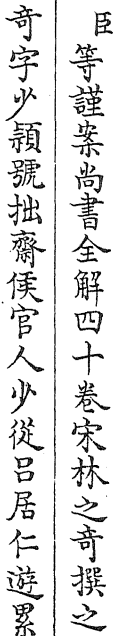 臣等謹案尚書全解四十卷宋林之奇撰之
奇字少頴號拙齋侯官人少從呂居仁遊累